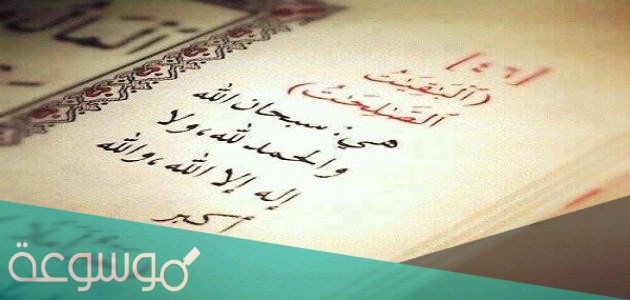 [٤٦]
(ٱلْبَٰقِيَٰتُ
ٱلصَّٰلِحَٰتُ)
هي: سبحان الله
والحمد لله، ولا
إله إلا الله، والله
أكبر
موسوعة